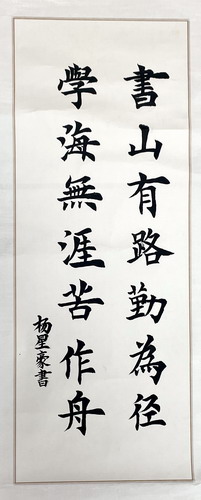 書山有路勤為径
學海無涯苦作舟
杨星豪書